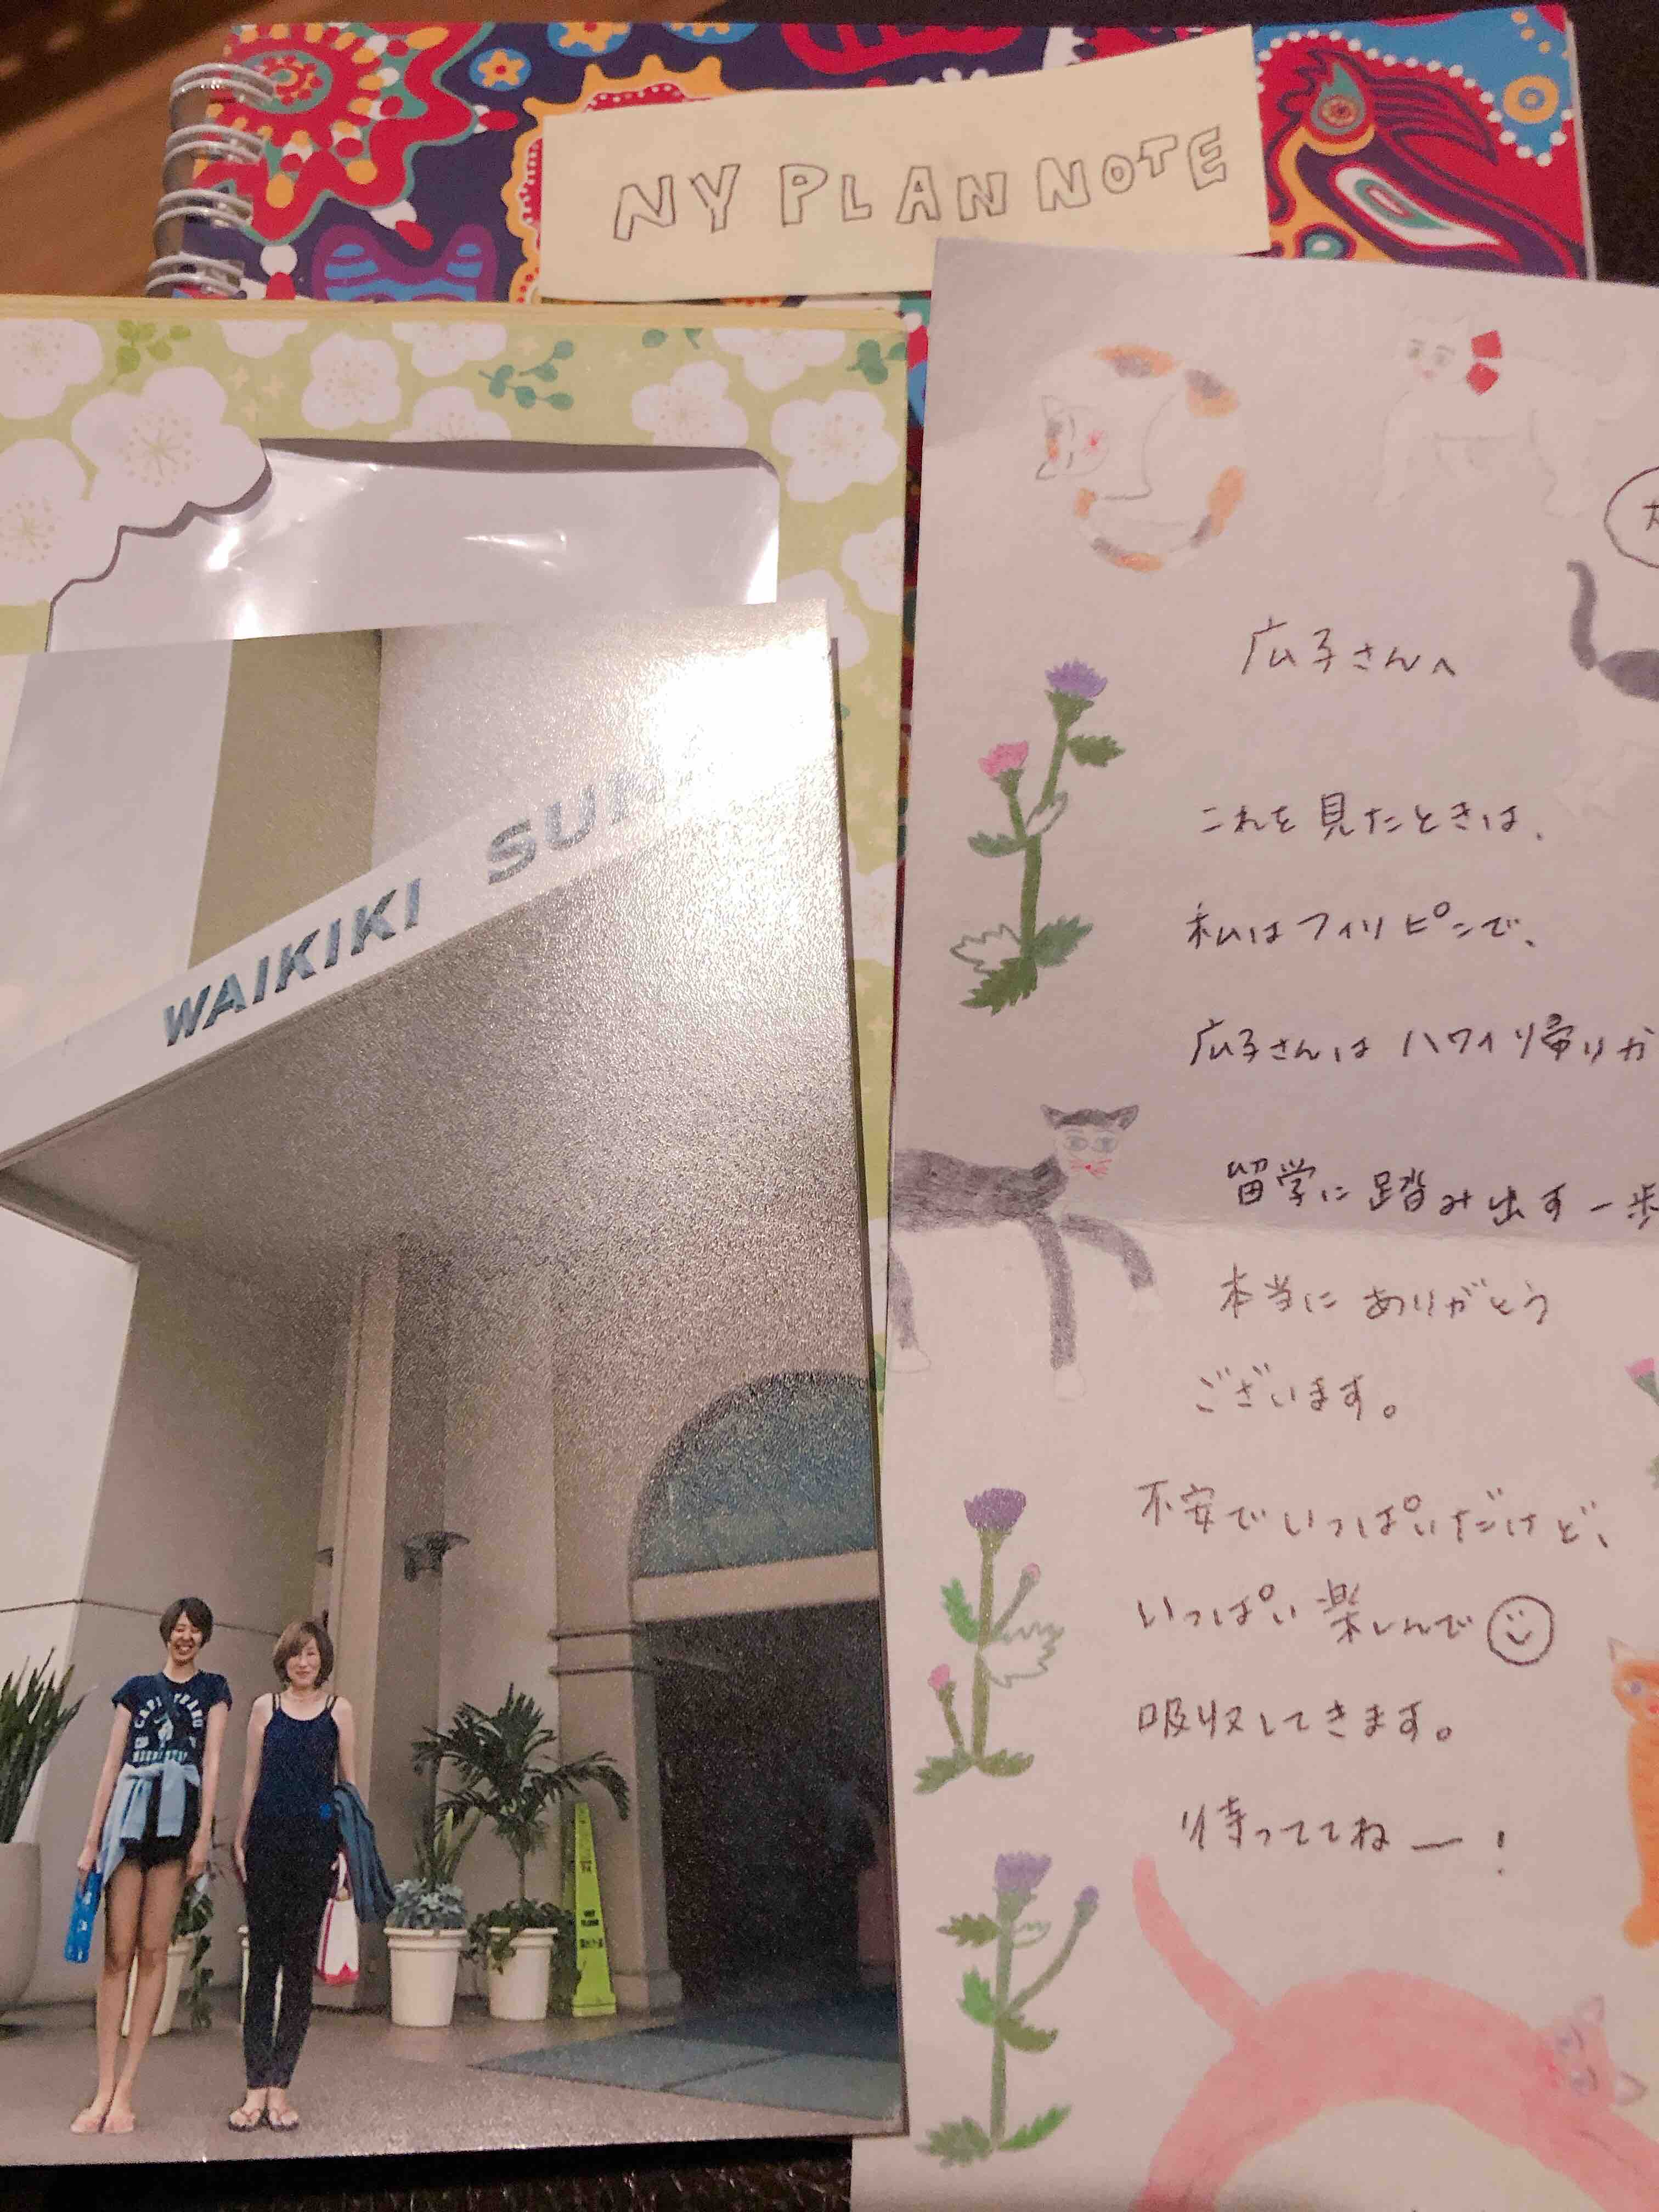 NY PLAN NOTE
WAIKIKI SUN
広子さんへ
これを見たときは、
私はフィリピンで、
広子さんはハワイ帰りか
留学に踏み出す一歩
本当にありがとう
ございます。
不安でいっぱいだけど、
いっぱい楽しんで
吸収してきます。
待っててねー!